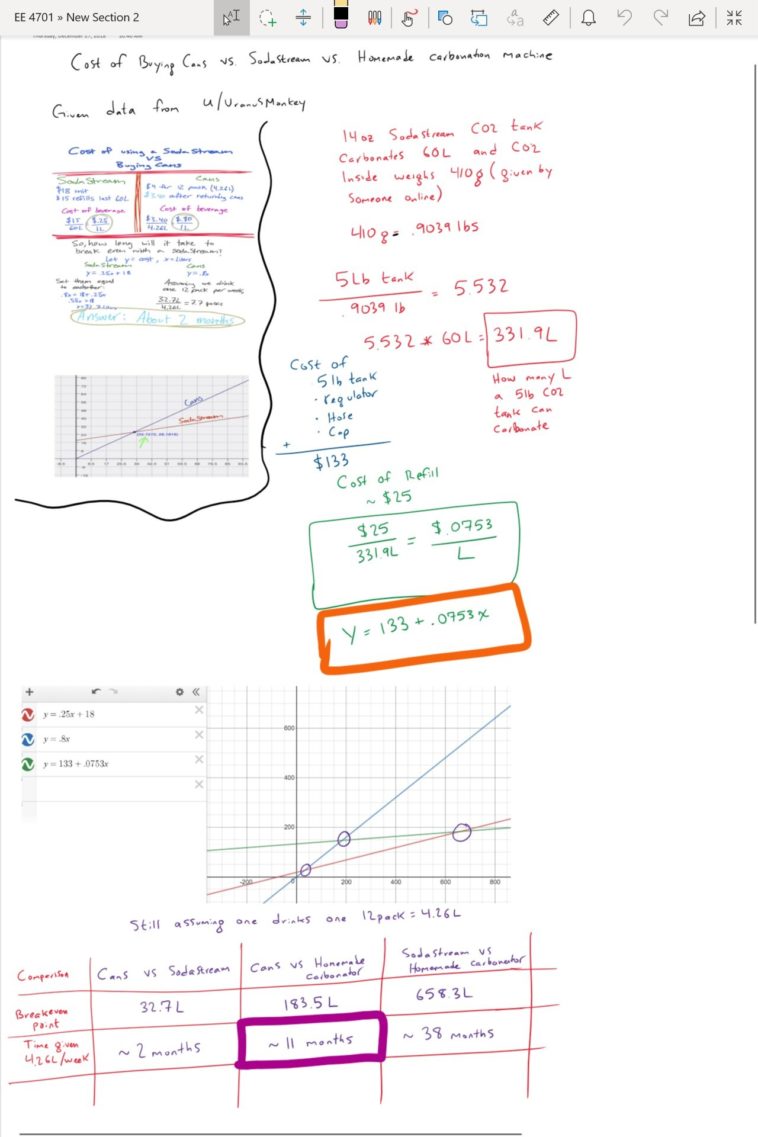 EE 4701 » New Section 2
Cost of Buying Cans vs. SodaStream vs. Homemade carbonation machine
Given data from u/UranusMonkey
Cost of using a Soda Stream
VS
Buying Cans
Soda Stream
$18 unit
$15 refills last 60L
Cost of beverage
$15
60L
$.25
1L
Cans
$4 for 12 pack (4.26L)
$3.40 after returning cans
Cost of beverage
$3.40
4.26L
$.80
1L
So, how long will it take to
break even with a SodaStream?
Let y = cost, x = liters
SodaStream
y = .25x + 18
Cans
y = .8x
Set them equal
to another
.8x = 18 + .25x
.55x = 18
Assuming we drink
one 12 pack per week
32.7L
4.26L
= 7.7 packs
Answer: About 2 months
Cans
SodaStream
14oz Sodastream CO2 tank
Carbonates 60L and CO2
Inside weighs 410g (given by
Someone online)
410g = .9039 lbs
5Lb tank
.9039 lb
= 5.532
5.532 * 60L = 331.9L
How many L
a 5lb CO2
tank can
Carbonate
Cost of
5lb tank
· regulator
· Hose
· Cap
+
$133
Cost of Refill
~ $25
$25
331.9L
=
$.0753
L
Y = 133 + .0753x
y = .25x + 18
y = .8x
y = 133 + .0753x
600
400
200
-200
0
200
400
600
800
Still assuming one drinks one 12pack = 4.26L
Comparison
Cans vs SodaStream
Cans vs Homemake
Carbonator
SodaStream vs
Homemade Carbonator
Breakeven
point
32.7L
183.5L
658.3L
Time given
4.26L/week
~ 2 months
~ 11 months
~ 38 months